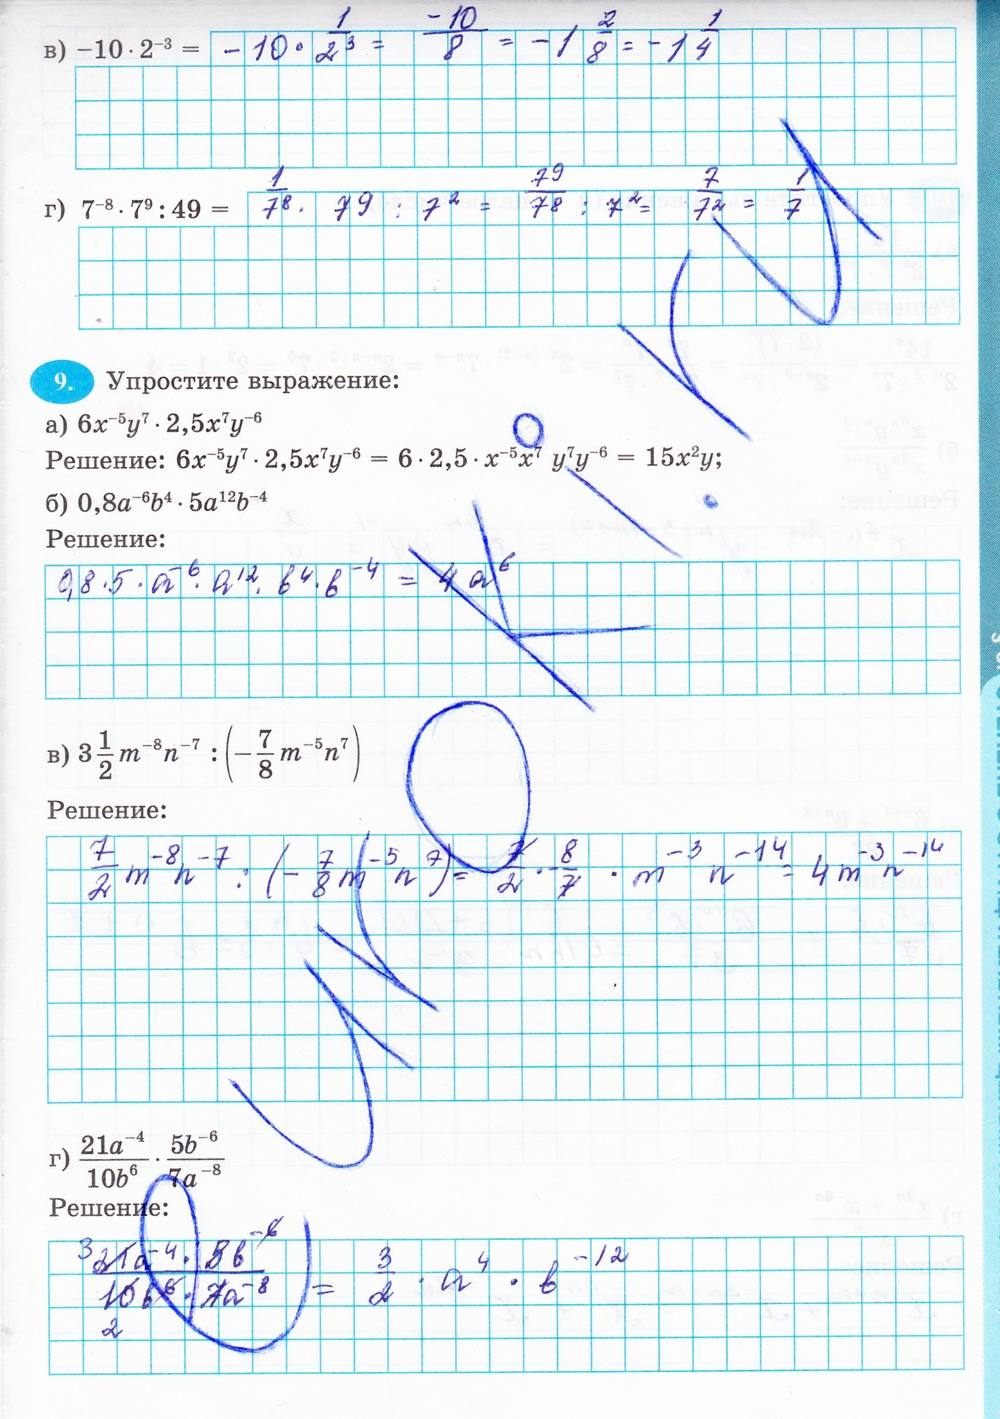 в) −10 · 2⁻³ = − 10 · 1/2³ = −10/8 = −1 2/8 = −1 1/4
г) 7⁻⁸ · 7⁹ : 49 = 1/7⁸ · 7⁹ : 7² = 7⁹/7⁸ : 7² = 7/7² = 1/7
9. Упростите выражение:
а) 6x⁻⁵y⁷ · 2,5x⁷y⁻⁶
Решение: 6x⁻⁵y⁷ · 2,5x⁷y⁻⁶ = 6 · 2,5 · x⁻⁵x⁷ y⁷y⁻⁶ = 15x²y;
б) 0,8a⁻⁶b⁴ · 5a¹²b⁻⁴
Решение:
0,8 · 5 · a⁻⁶ · a¹² · b⁴ · b⁻⁴ = 4a⁶
в) 3 1/2 m⁻⁸n⁻⁷ : (−7/8 m⁻⁵n⁷)
Решение:
7/2 m⁻⁸n⁻⁷ : (−7/8 m⁻⁵n⁷) = 7/2 · −8/7 · m⁻³ n⁻¹⁴ = 4m⁻³n⁻¹⁴
г) 21a⁻⁴/10b⁶ · 5b⁻⁶/7a⁻⁸
Решение:
3 21a⁻⁴ · 5b⁻⁶ / 10b⁶ · 7a⁻⁸ 2 = 3/2 · a⁴ · b⁻¹²